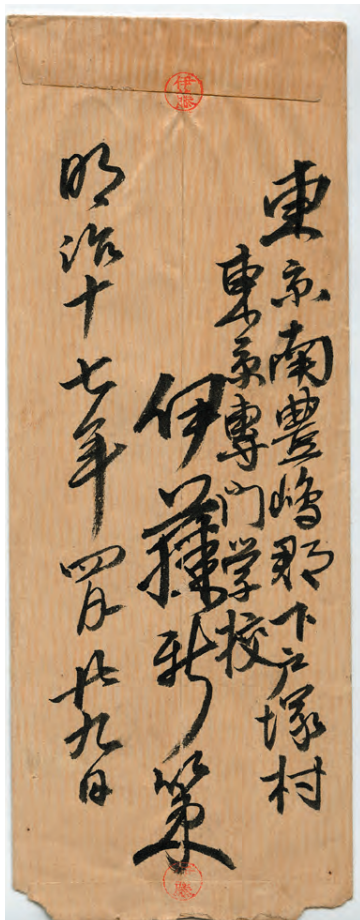 東京南豐嶋郡下戸塚村
東京專門学校
伊藤新策
明治十七年四月廿九日